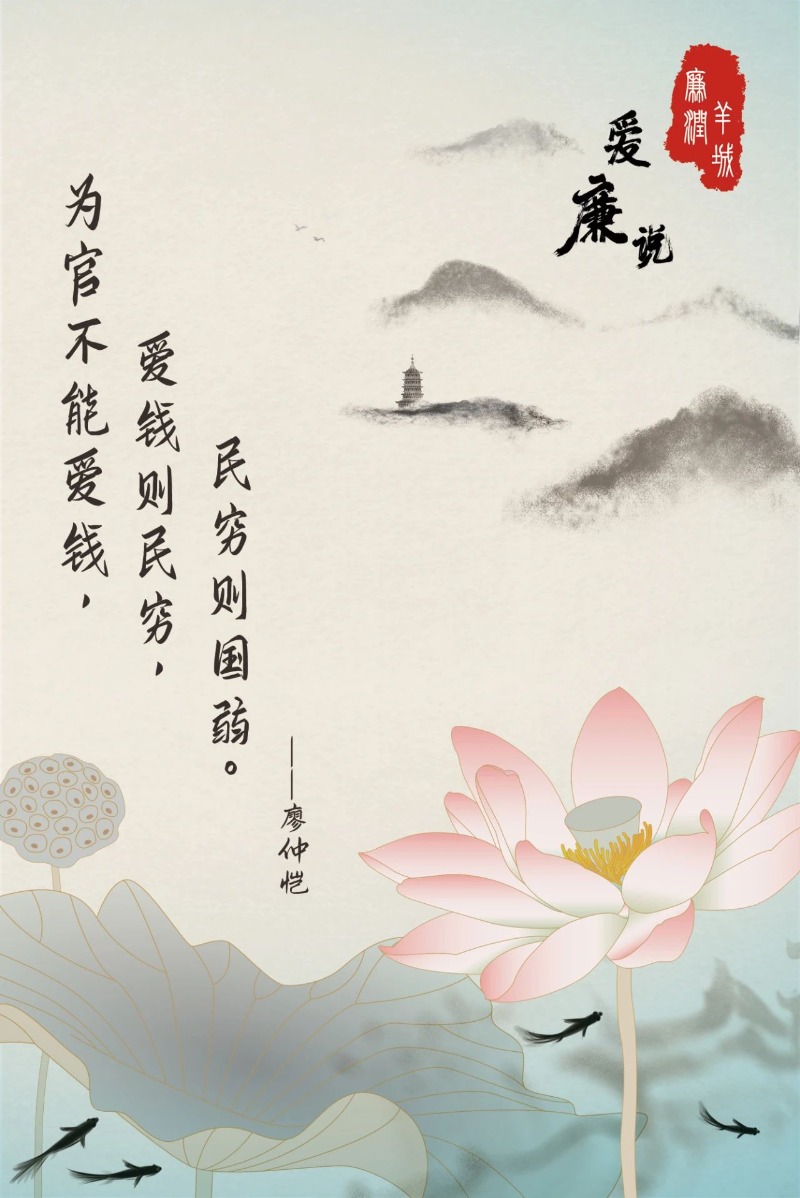 廉潤
羊城
爱廉说
为官不能爱钱，
爱钱则民穷，
民穷则国弱。
——廖仲恺